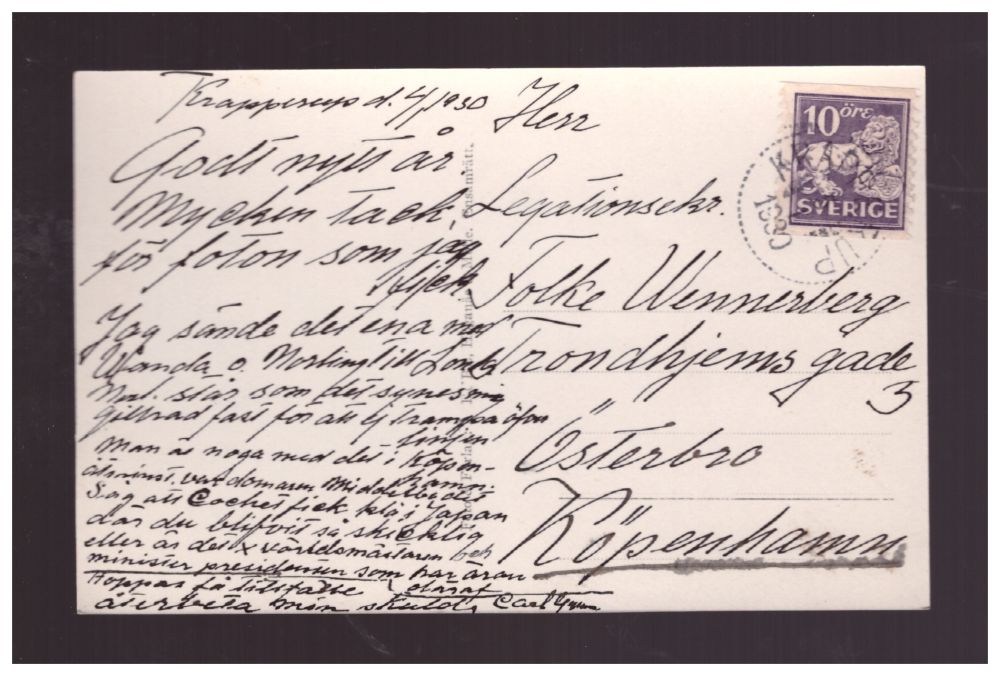 Krapperup d. 4/1 1930
Godt nytt år.
Mycken tack
för foton som jag
fick.
Jag sände det ena med
Wanda o. Norling till
står som det synes mig
fast för att ej trampa öfver
linjen
Man är noga med det i Köpen-
hamn.
åtminst. var domaren Middelboe det
Såg att Cochet fick klå i Japan
där du blifvit så skicklig
eller är det x världsmästaren och
minister presidenten som har äran
däraf
Hoppas få tillfälle
återbeta min skuld. Carl
Herr
Legationssekr.
Folke Wennerberg
Trondhjems gade
3
Österbro
Köpenhamn
10 öre
SVERIGE
KRAPPERUP
1930